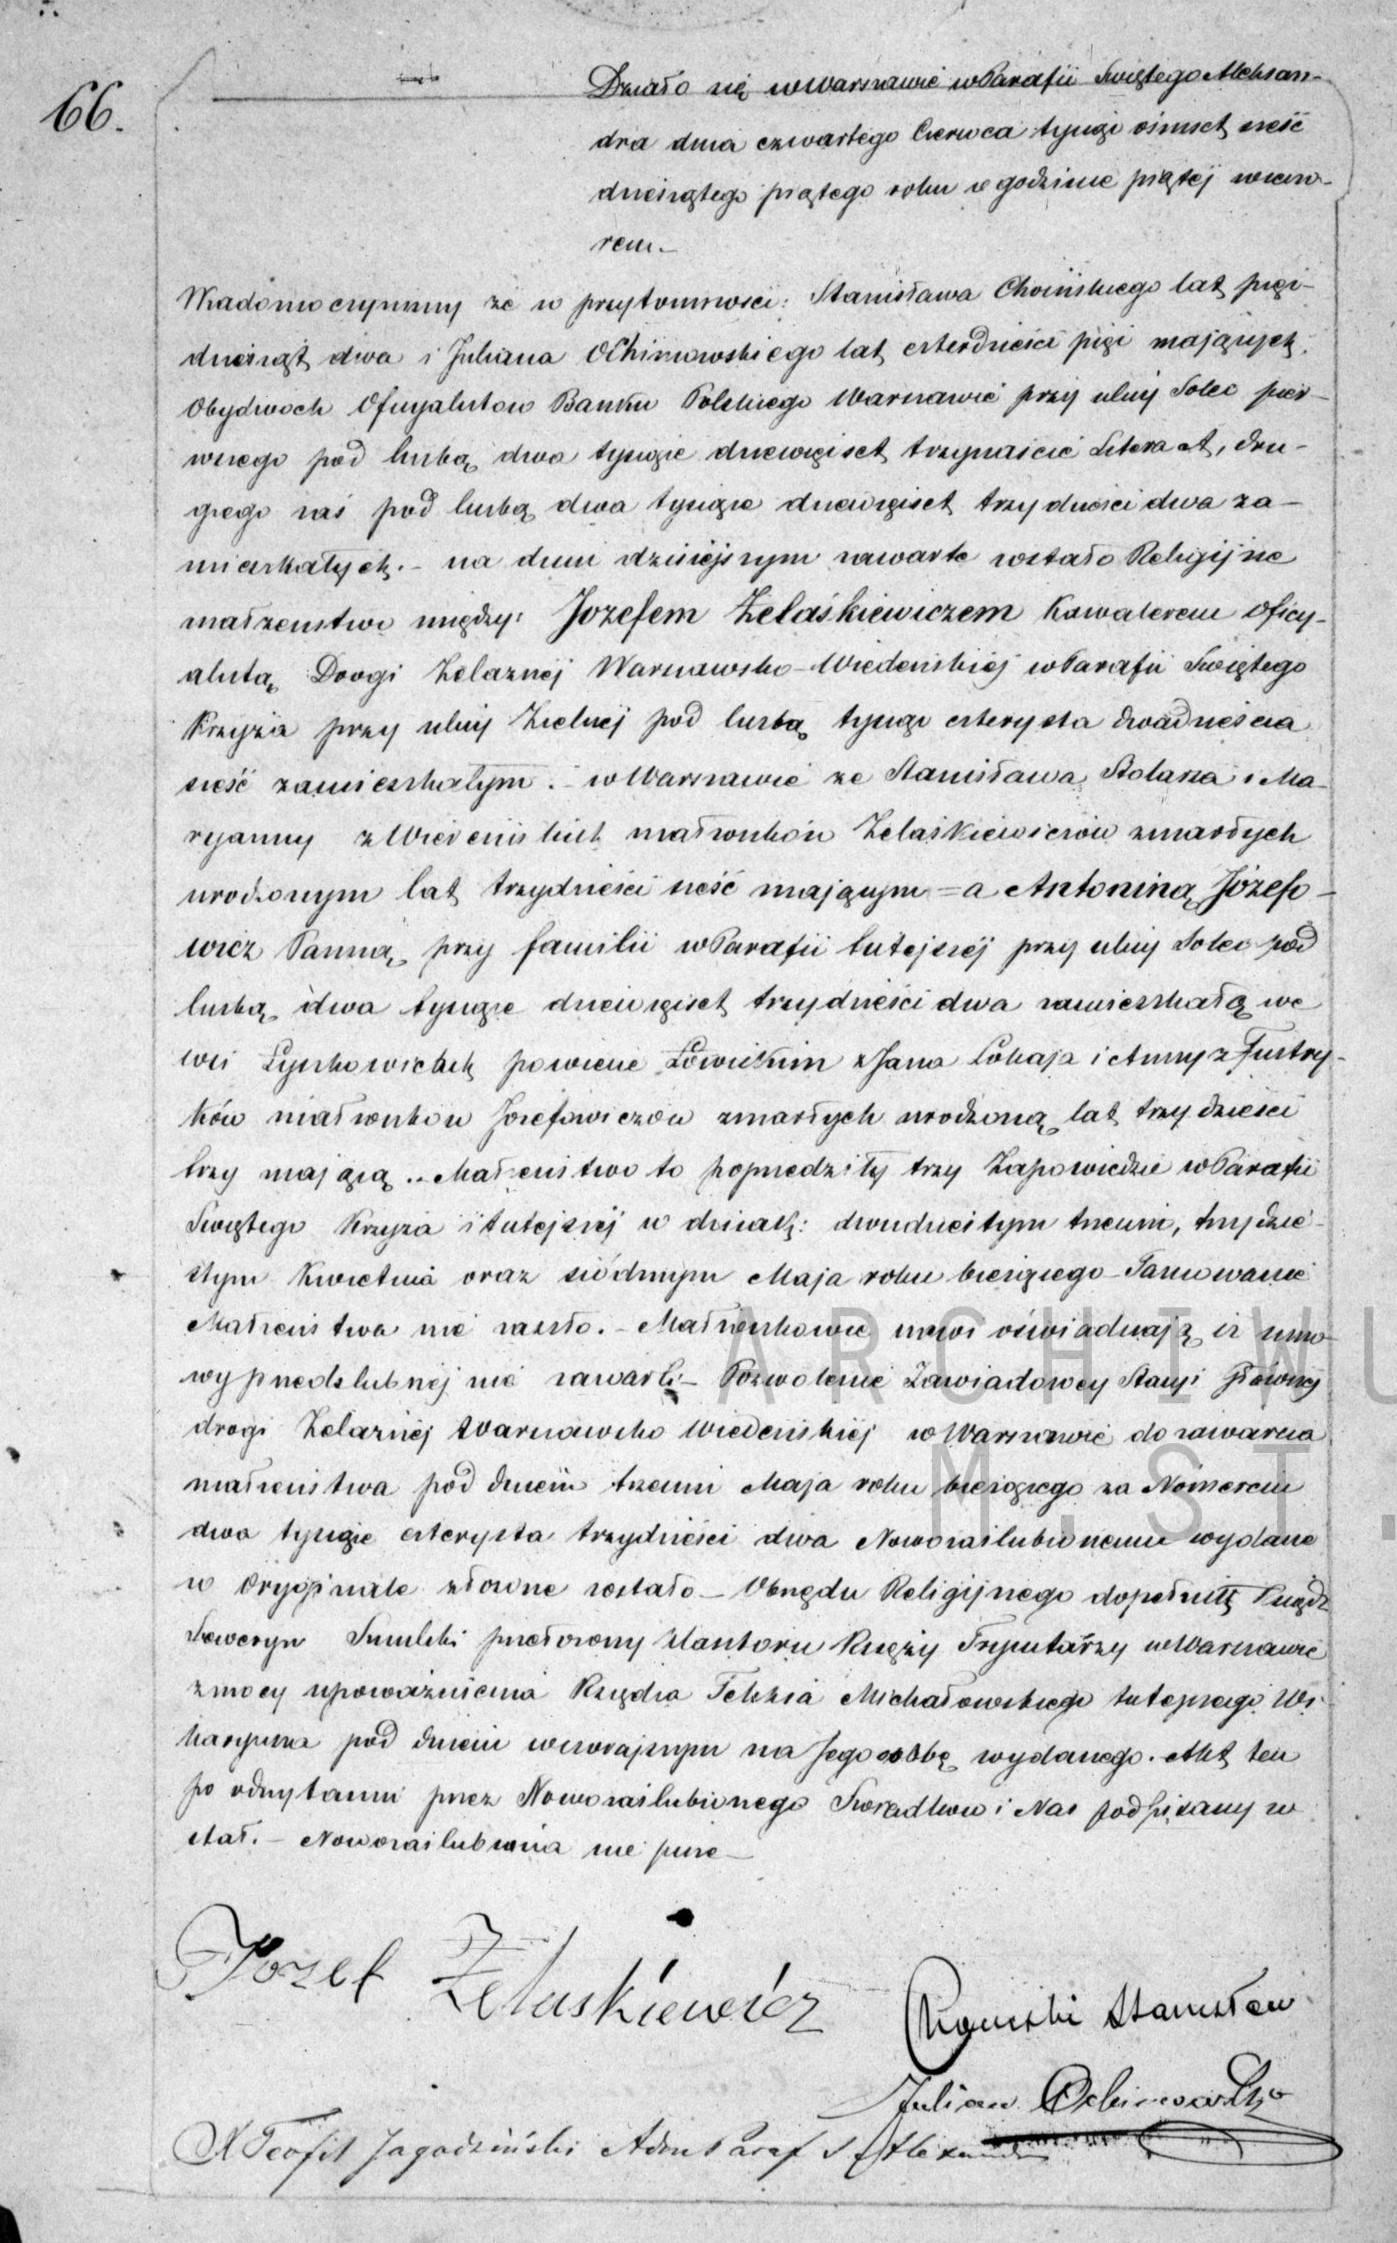 66.
Działo się w Warszawie w Parafii Świętego Alexan-
dra dnia czwartego Czerwca tysiąc ośmset sześć
dziesiątego piątego roku o godzinie piątej wieczo-
rem.—
Wiadomo czyniemy że w przytomności: Stanisława Choińskiego lat pięć-
dziesiąt dwa i Juliana Ochimowskiego lat czterdzieści pięć mających.
Obydwóch Oficyalistow Banku Polskiego w Warszawie przy ulicy Solec pier-
wszego pod liczbą dwa tysiące dziewięćset trzynaście Litera A, dru-
giego zaś pod liczbą dwa tysiące dziewięćset trzydzieści dwa za-
mieszkałych.— na dniu dzisiejszym zawarte zostało Religijne
małżeństwo między: Jozefem Żelaśkiewiczem Kawalerem Oficy-
alistą Drogi Żelaznej Warszawsko-Wiedeńskiej w Parafii Świętego
Krzyża przy ulicy Zielnej pod liczbą tysiąc czterysta dwadzieścia
sześć zamieszkałym.— w Warszawie ze Stanisława Stolarza i Ma-
ryanny z Wiedeńskich małżonków Żelaśkiewiczów zmarłych
urodzonym lat trzydzieści sześć mającym = a Antoniną Józefo-
wicz Panną, przy familii w Parafii tutejszej przy ulicy Solec pod
liczbą dwa tysiące dziewięćset trzydzieści dwa zamieszkałą we
wsi Łyszkowicach powiecie Łowickim z Jana Łukaja i Anny z Fustry-
ków małżonków Józefowiczów zmarłych urodzoną lat trzydzieści
trzy mającą.— Małżeństwo to poprzedziły trzy Zapowiedzie w Parafii
Świętego Krzyża i tutejszej w dniach: dwudziestym trzecim, trzydzie-
stym Kwietnia oraz siódmym Maja roku bieżącego— Tamowanie
Małżeństwa nie zaszło.— Małżonkowie nowi oświadczają iż umo-
wy przedślubnej nie zawarli— Pozwolenie Zawiadowcy Stacyi głównej
drogi Żelaznej Warszawsko Wiedeńskiej w Warszawie do zawarcia
małżeństwa pod dniem trzecim Maja roku bieżącego za Nomerem
dwa tysiące czterysta trzydzieści dwa Nowozaślubionemu wydane
w oryginale złożone zostało— Obrzędu Religijnego dopełnił Ksiądz
Seweryn przełożony Klasztoru Księży Trynitarzy w Warszawie
z mocy upoważnienia Księdza Felixa Michałowskiego tutejszego Wi-
karyusza pod dniem wczorajszym na Jego osobę wydanego. Akt ten
po odczytaniu przez Nowozaślubionego Świadków i Nas podpisany zo
stał.— Nowozaślubiona nie pisze—
Jozef Żelaskiewicz
Choinski Stanisław
Julian Ochimowski
X Teofil Jagodziński Adm Paraf S Alexandra
ARCHIWU
M.ST.